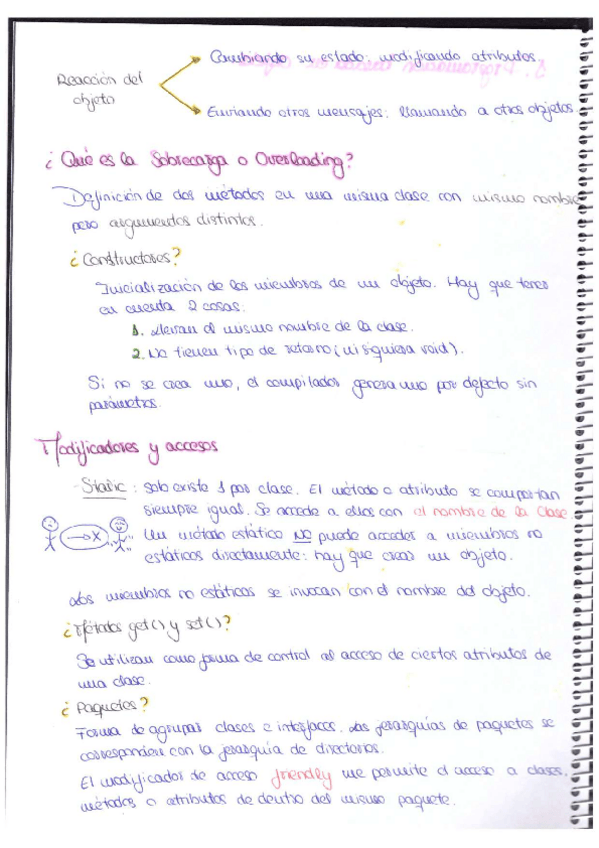 Cambiando su estado: modificando atributos.
Reacción del
objeto
Enviando otros mensajes: llamando a otros objetos
¿Qué es la Sobrecarga o Overloading?
Definición de dos métodos en una misma clase con mismo nombre
pero argumentos distintos.
¿Constructores?
Inicialización de los miembros de un objeto. Hay que tener
en cuenta 2 cosas:
1. Llevan el mismo nombre de la clase.
2. No tienen tipo de retorno (ni siquiera void).
Si no se crea uno, el compilador genera uno por defecto sin
parámetros.
Modificadores y accesos
- Static: Solo existe 1 por clase. El método o atributo se comportan
siempre igual. Se accede a ellos con el nombre de la clase.
→X
Un método estático NO puede acceder a miembros no
estáticos directamente: hay que crear un objeto.
Los miembros no estáticos se invocan con el nombre del objeto.
¿Métodos get() y set()?
Se utilizan como forma de control al acceso de ciertos atributos de
una clase.
¿Paquetes?
Forma de agrupar clases e interfaces. Las jerarquías de paquetes se
corresponden con la jerarquía de directorios.
El modificador de acceso friendly me permite el acceso a clases,
métodos o atributos de dentro del mismo paquete.